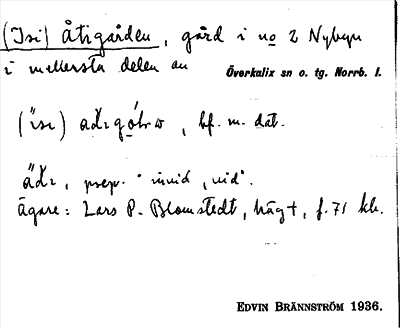 (Isi) Åtigården, gård i no 2 Nybyn
i mellersta delen av Överkalix sn o. tg. Norrb. l.
(ı̈sı) , bf. m. dat.
prep. "invid, vid".
ägare: Lars P. Blomstedt, , f. 71 kh.
EDVIN BRÄNNSTRÖM 1936.